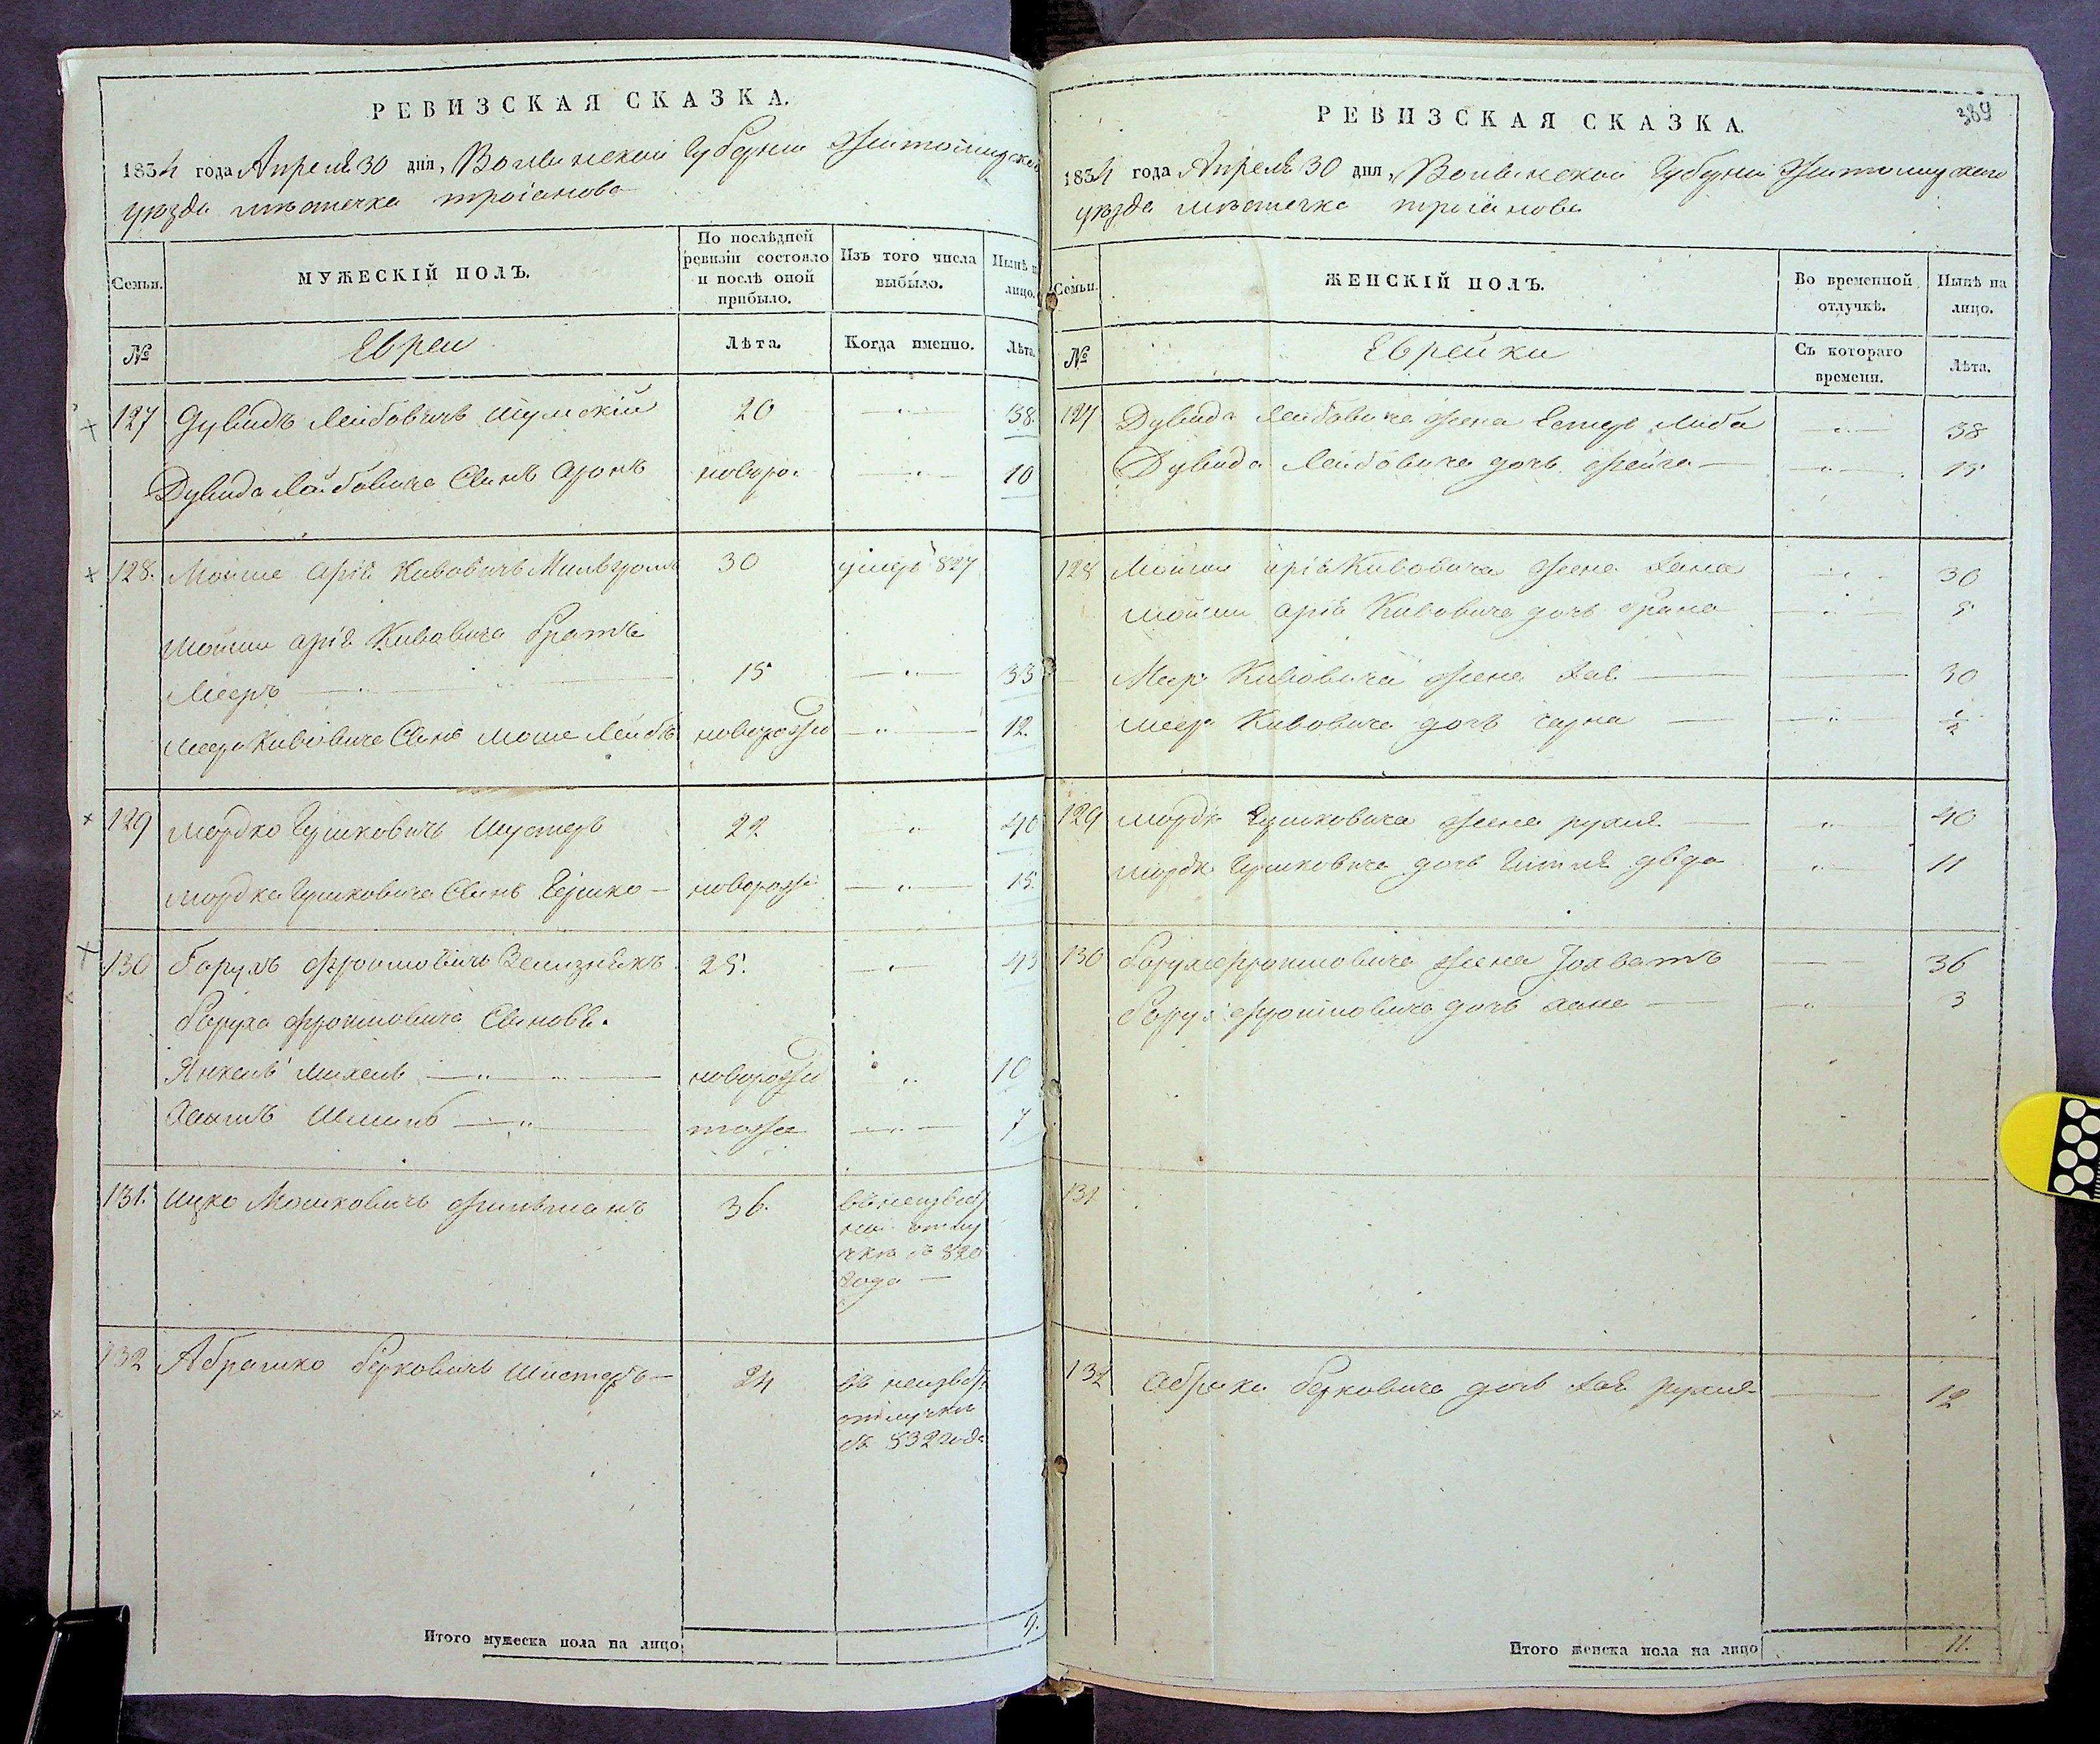 РЕВИЗСКАЯ СКАЗКА.
1834 года Апреля 30 дня, Волынской Губернии Житомирского
уѣзда мѣстечка Троіанова
Семьи.
МУЖЕСКІЙ ПОЛЪ.
По послѣдней ревизіи состояло и послѣ оной прибыло.
Изъ того числа выбыло.
Нынѣ на лицо.
№
Евреи
Лѣта.
Когда именно.
Лѣта.
127 Дувидъ Лейбовичъ Шумскій 20 38.
Дувида Лейбовича Сынъ Аронъ новоро. 10
128. Мойше Аріе Кивовичъ Мильгромъ 30 умеръ 827
Мойши Аріе Кивовича братъ
Мееръ 15 33
Меера Кивовича Сынъ Моше Лейбъ новорожд 12.
129 Мордко Гершковичъ Шустеръ 22 40
Мордка Гершковича Сынъ Гершко новорожд 15.
130 Борухъ Фроимовичъ Зелизнякъ 25. 43
Боруха Фроимовича Сыновя.
Янкель Михель новорожд 10
Хаимъ Шлиомъ тоже 7
131. Ицко Мошковичъ Фишманъ 36.
въ неизвѣст
ной отлу
чкѣ съ 820
года
132 Абрашко Берковичъ Шустеръ 24
въ неизвѣс
отлучки
съ 832 года
Итого мужеска пола на лицо 9.
РЕВИЗСКАЯ СКАЗКА.
389
1834 года Апреля 30 дня, Волынской Губерніи Житомирского
уѣзда мѣстечка Троіанова
Семьи.
ЖЕНСКІЙ ПОЛЪ.
Во временной отлучкѣ.
Нынѣ на лицо.
№
Еврейки
Съ котораго времени.
Лѣта.
127 Дувида Лейбовича жена Естер Либа 38
Дувида Лейбовича дочь Фейга 15
128 Мойши Аріе Кивовича жена Хана 30
Мойши Аріе Кивовича дочь 5
Меер Кивовича жена Хая 30
Меер Кивовича дочь Чарна 1/2
129 Мордк Гершковича жена Рухля 40
Мордк Гершковича дочь Гитля Двора 11
130 Боруха Фроимовича жена 36
Борух Фроимовича дочь Хана 3
131
132 Абрашки Берковича дочь Хая Рухля 12
Итого женска пола на лицо 11.